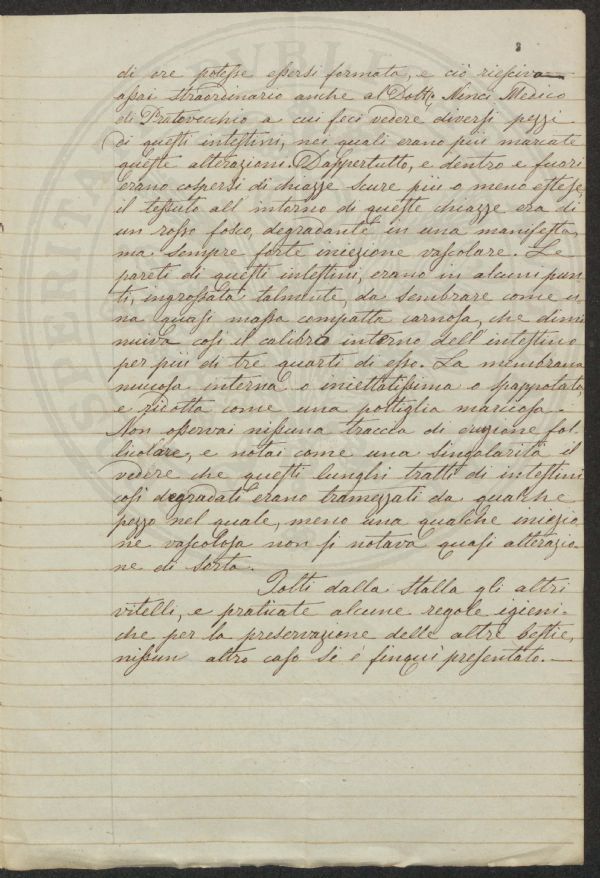 3
di ore potesse essersi formata, e ciò riesciva
assai straordinario anche al Dott. Ninci Medico
di Pratovecchio a cui feci vedere diversi pezzi
di questi intestini, nei quali erano più marcate
queste alterazioni. Dappertutto, e dentro e fuori
erano cospersi di chiazze scure più o meno estese,
il tessuto all' intorno di queste chiazze era di
un rosso fosco, degradante in una manifesta,
ma sempre forte iniezione vascolare. Le
pareti di questi intestini, erano in alcuni pun
ti, ingrossata talmente, da sembrare come u
na quasi massa compatta carnosa, che dimi
nuiva così il calibro interno dell' intestino
per più di tre quarti di esso. La membrana
mucosa interna o iniettatissima o spappolata,
e ridotta come una poltiglia marciosa.
Non osservai nissuna traccia di eruzione fol
licolare, e notai come una singolarità il
vedere che questi lunghi tratti di intestini
così degradati erano tramezzati da qualche
pezzo nel quale, meno una qualche iniezio
ne vascolosa non si notava quasi alterazio
ne di sorta.
Tolti dalla stalla gli altri
vitelli, e praticate alcune regole igieni-
che per la preservazione delle altre bestie,
nissun altro caso si è finqui presentato.